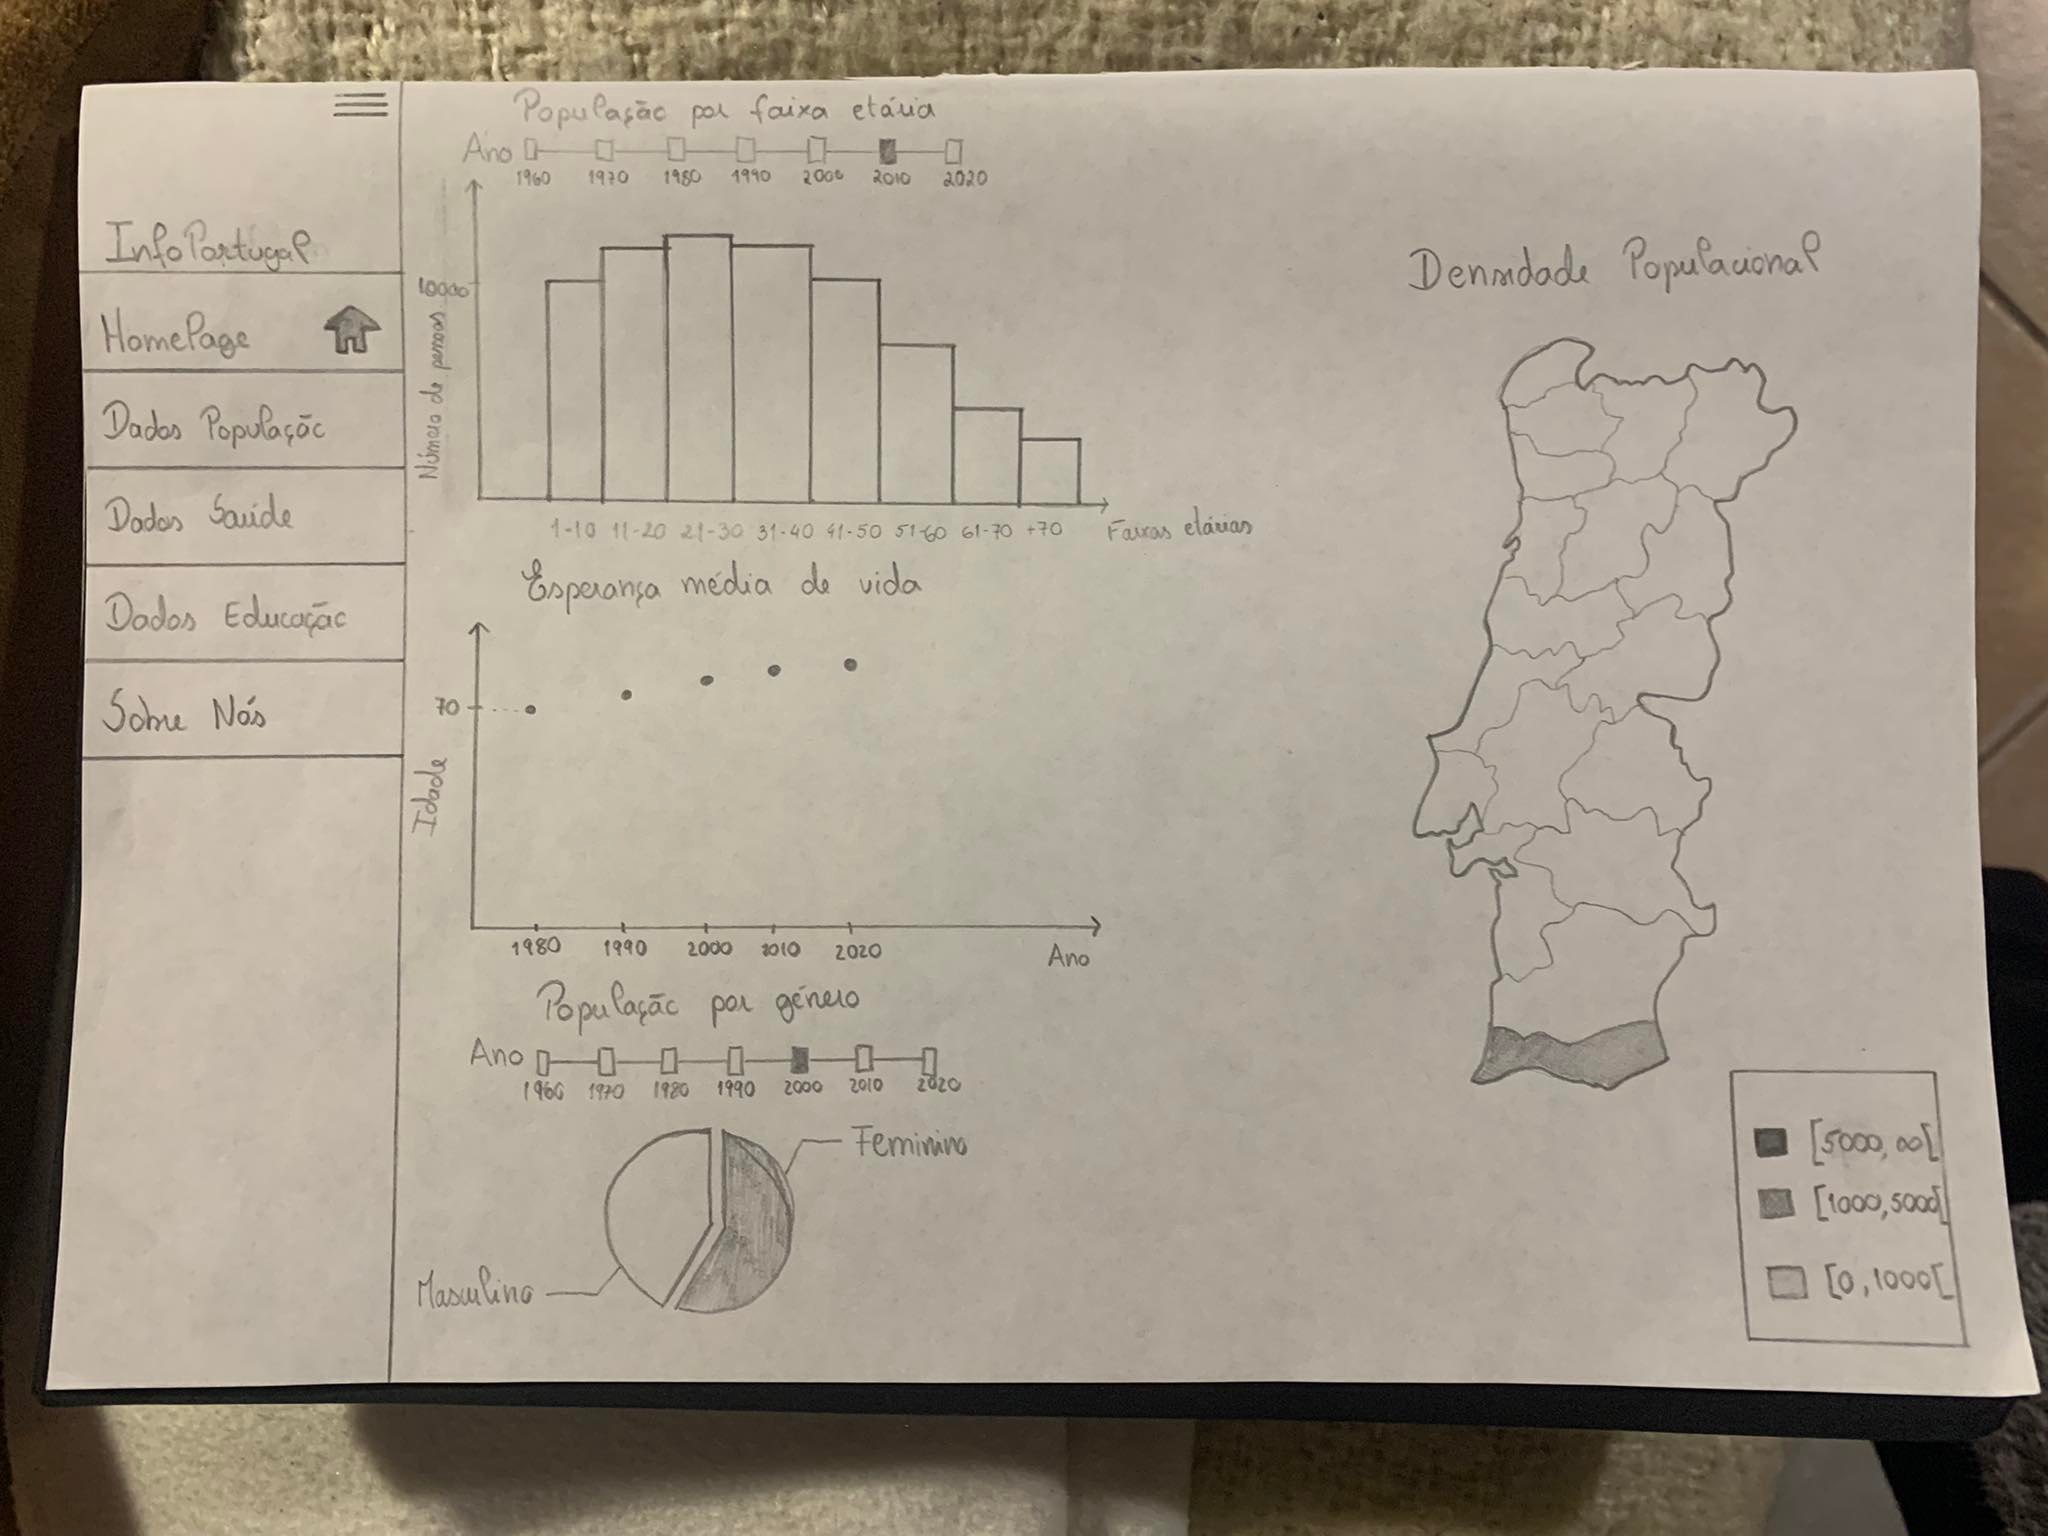 InfoPortugal
HomePage
Dados População
Dados Saúde
Dados Educação
Sobre Nós
População por faixa etária
Ano
1960 1970 1980 1990 2000 2010 2020
10000
Número de pessoas
1-10 11-20 21-30 31-40 41-50 51-60 61-70 +70
Faixas etárias
Esperança média de vida
70
Idade
1980 1990 2000 2010 2020
Ano
População por género
Ano
1960 1970 1980 1990 2000 2010 2020
Feminino
Masculino
Densidade Populacional
[5000, ∞[
[1000, 5000[
[0, 1000[